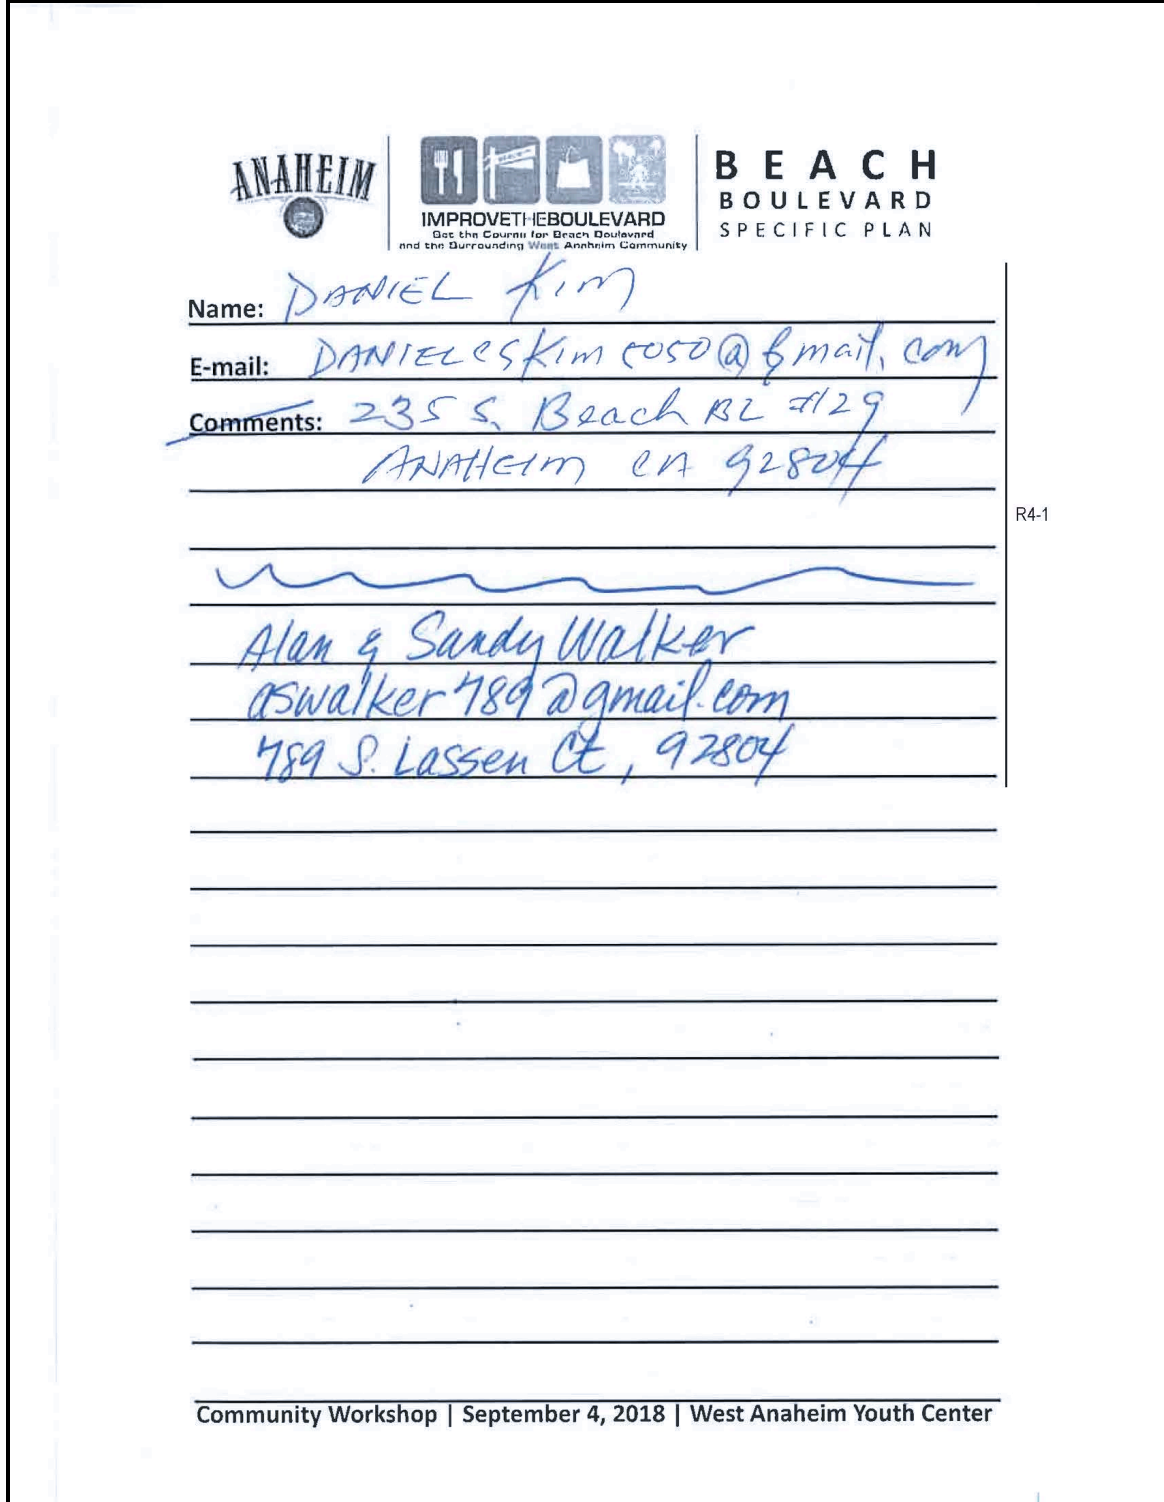 ANAHEIM
IMPROVETHEBOULEVARD
Set the Course for Beach Boulevard
and the Surrounding West Anaheim Community
BEACH
BOULEVARD
SPECIFIC PLAN
Name: DANIEL Kim
E-mail: @gmail.com
Comments: 235 S. Beach BL #129
ANAHEIM CA 92804
R4-1
Alan & Sandy Walker
aswalker789@gmail.com
789 S. Lassen Ct, 92804
Community Workshop | September 4, 2018 | West Anaheim Youth Center